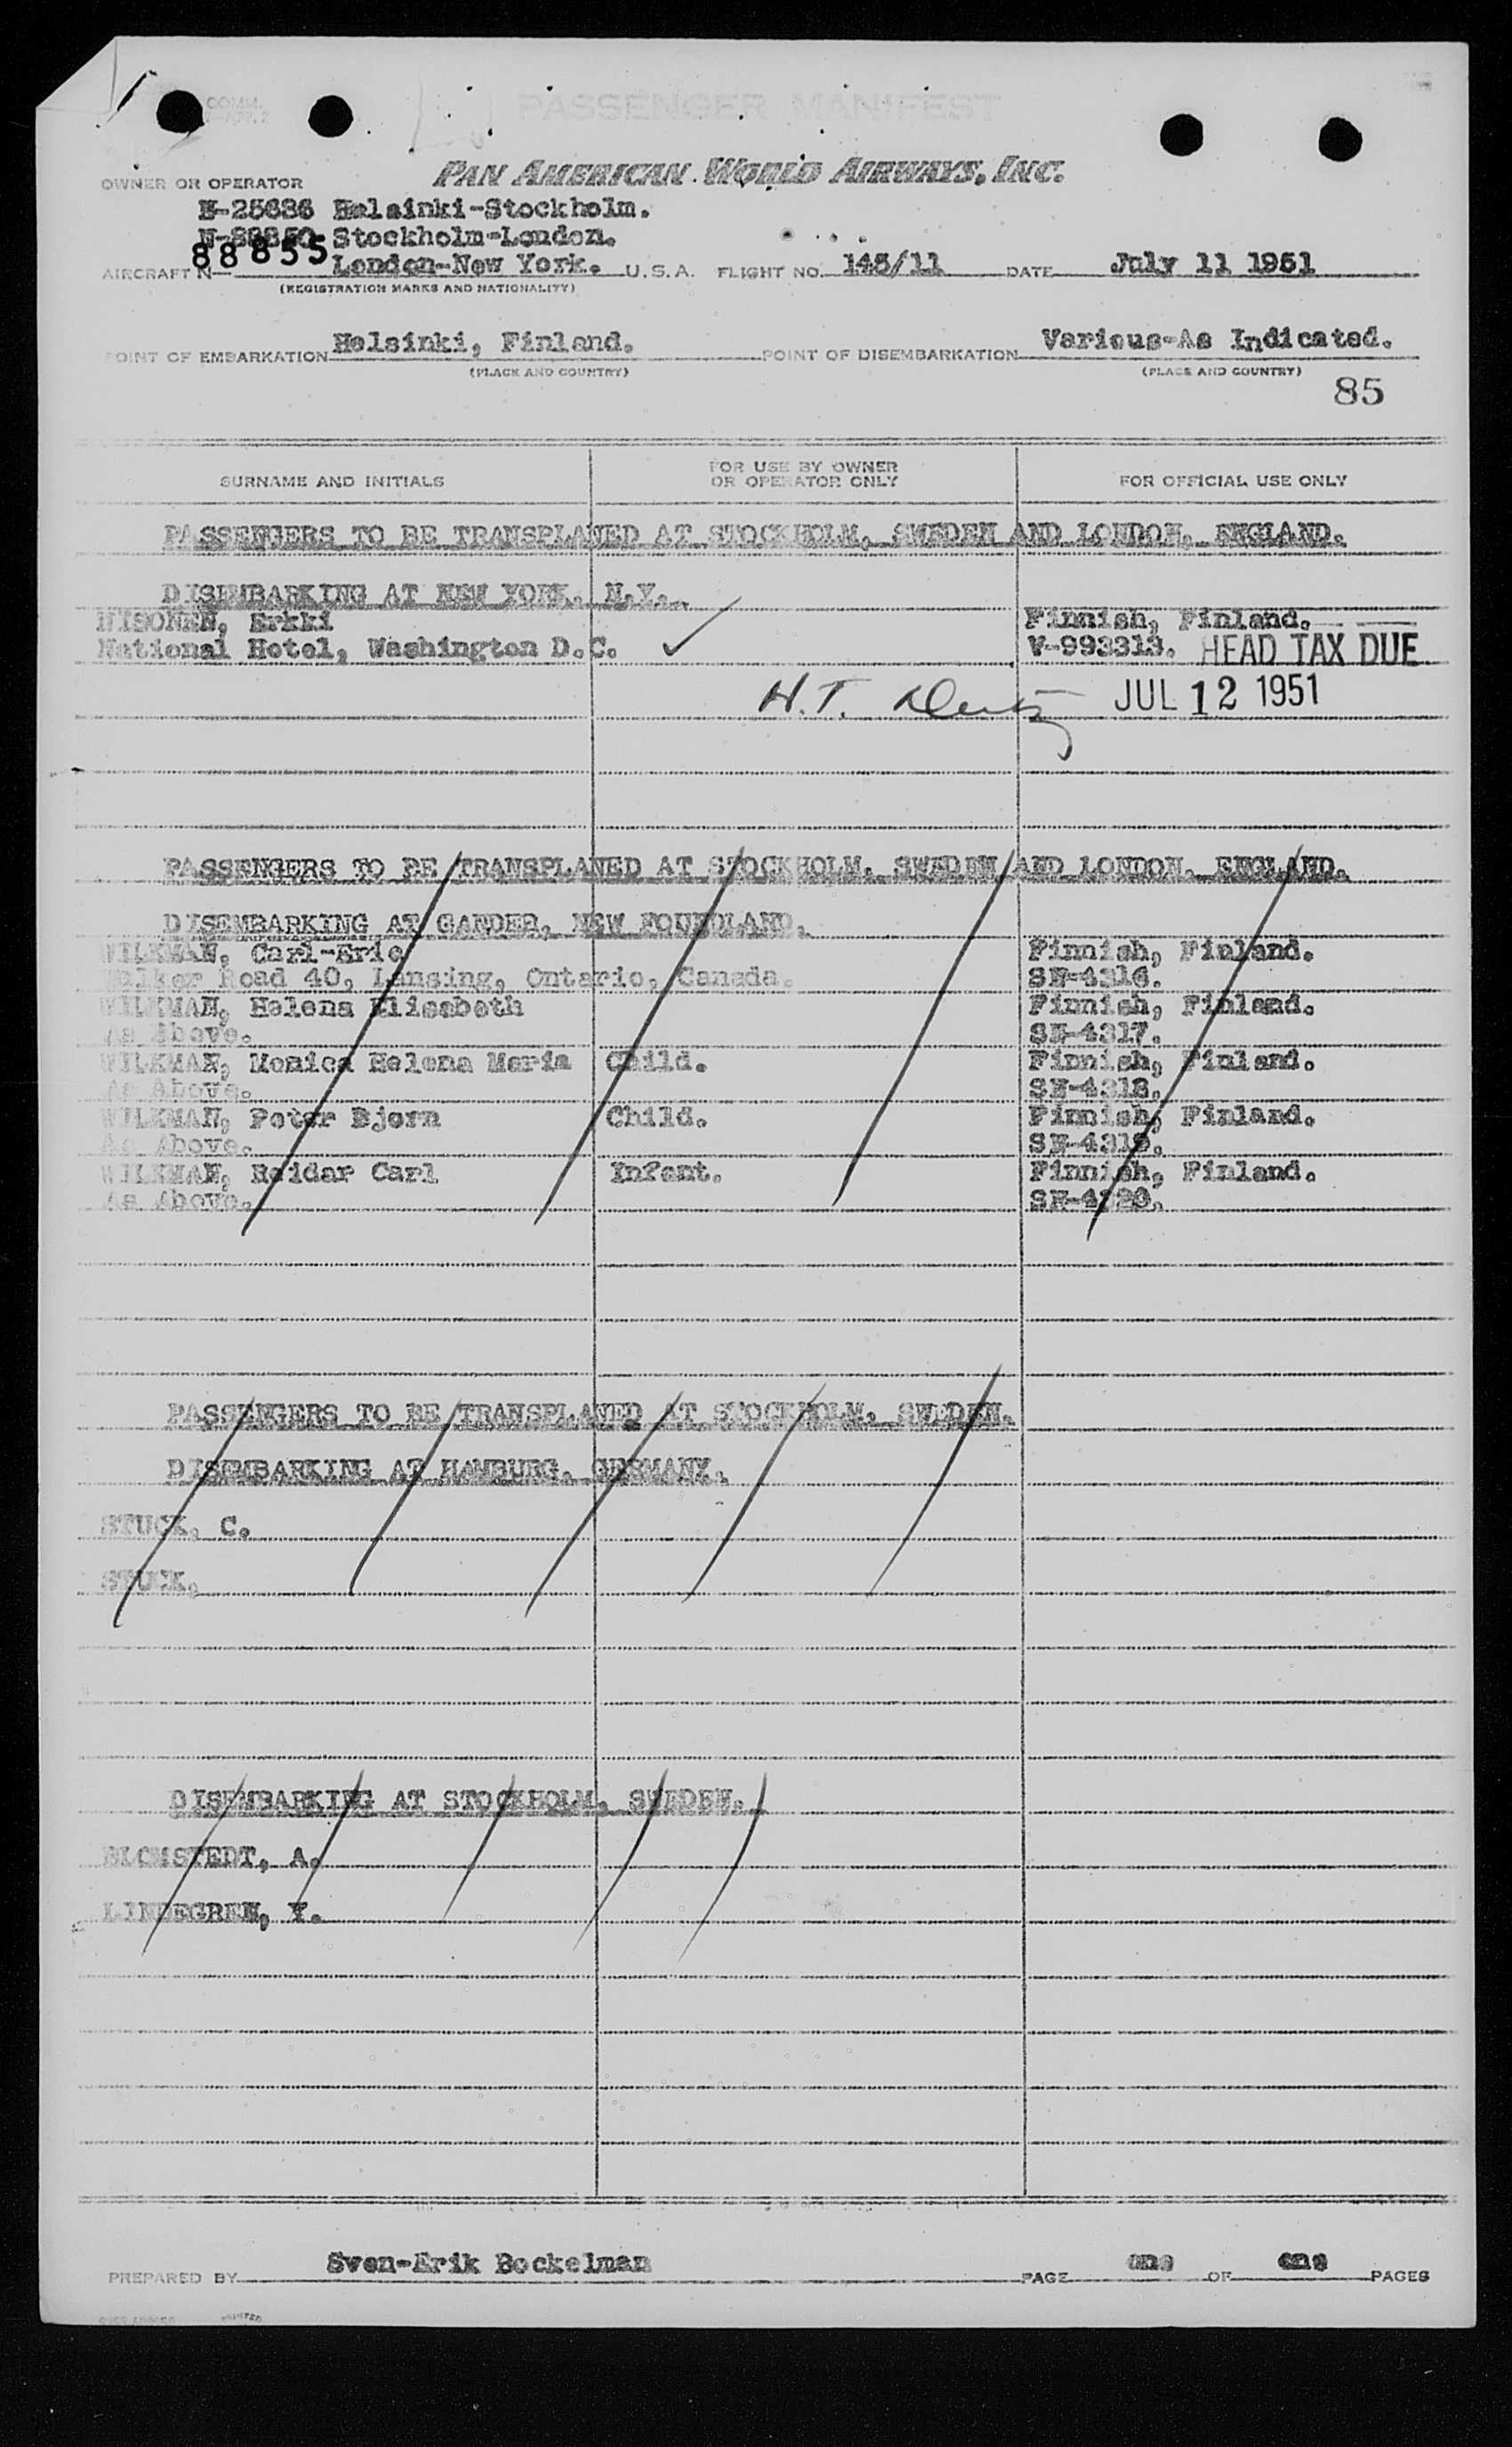 COMM.
PASSENGER MANIFEST
OWNER OR OPERATOR PAN AMERICAN WORLD AIRWAYS, INC.
N-25686 Helsinki-Stockholm.
Stockholm-London.
88855
AIRCRAFT N London-New York. U.S.A. FLIGHT NO. 145/11 DATE July 11 1951
(REGISTRATION MARKS AND NATIONALITY)
POINT OF EMBARKATION Helsinki, Finland. POINT OF DISEMBARKATION Various-As Indicated.
(PLACE AND COUNTRY) (PLACE AND COUNTRY)
85
SURNAME AND INITIALS FOR USE BY OWNER OR OPERATOR ONLY FOR OFFICIAL USE ONLY
PASSENGERS TO BE TRANSPLANED AT STOCKHOLM, SWEDEN AND LONDON, ENGLAND.
DISEMBARKING AT NEW YORK, N.Y.
Erkki Finnish, Finland.
National Hotel, Washington D.C. V-993313. HEAD TAX DUE
H.T. JUL 12 1951
PASSENGERS TO BE TRANSPLANED AT STOCKHOLM, SWEDEN AND LONDON, ENGLAND.
DISEMBARKING AT GANDER, NEW FOUNDLAND.
WILKMAN, Carl-Eric Finnish, Finland.
Walker Road 40, Lansing, Ontario, Canada. SE-4316.
WILKMAN, Helena Elisabeth Finnish, Finland.
As Above. SE-4317.
WILKMAN, Monica Helena Maria Child. Finnish, Finland.
As Above. SE-4318.
WILKMAN, Peter Bjorn Child. Finnish, Finland.
As Above. SE-4319.
WILKMAN, Reidar Carl Infant. Finnish, Finland.
As Above. SE-4320.
PASSENGERS TO BE TRANSPLANED AT STOCKHOLM, SWEDEN.
DISEMBARKING AT HAMBURG, GERMANY.
STUCK, C.
STUCK.
DISEMBARKING AT STOCKHOLM, SWEDEN.
BLOMSTEDT, A.
LINDEGREN, Y.
PREPARED BY Sven-Erik Bockelman PAGE one OF one PAGES